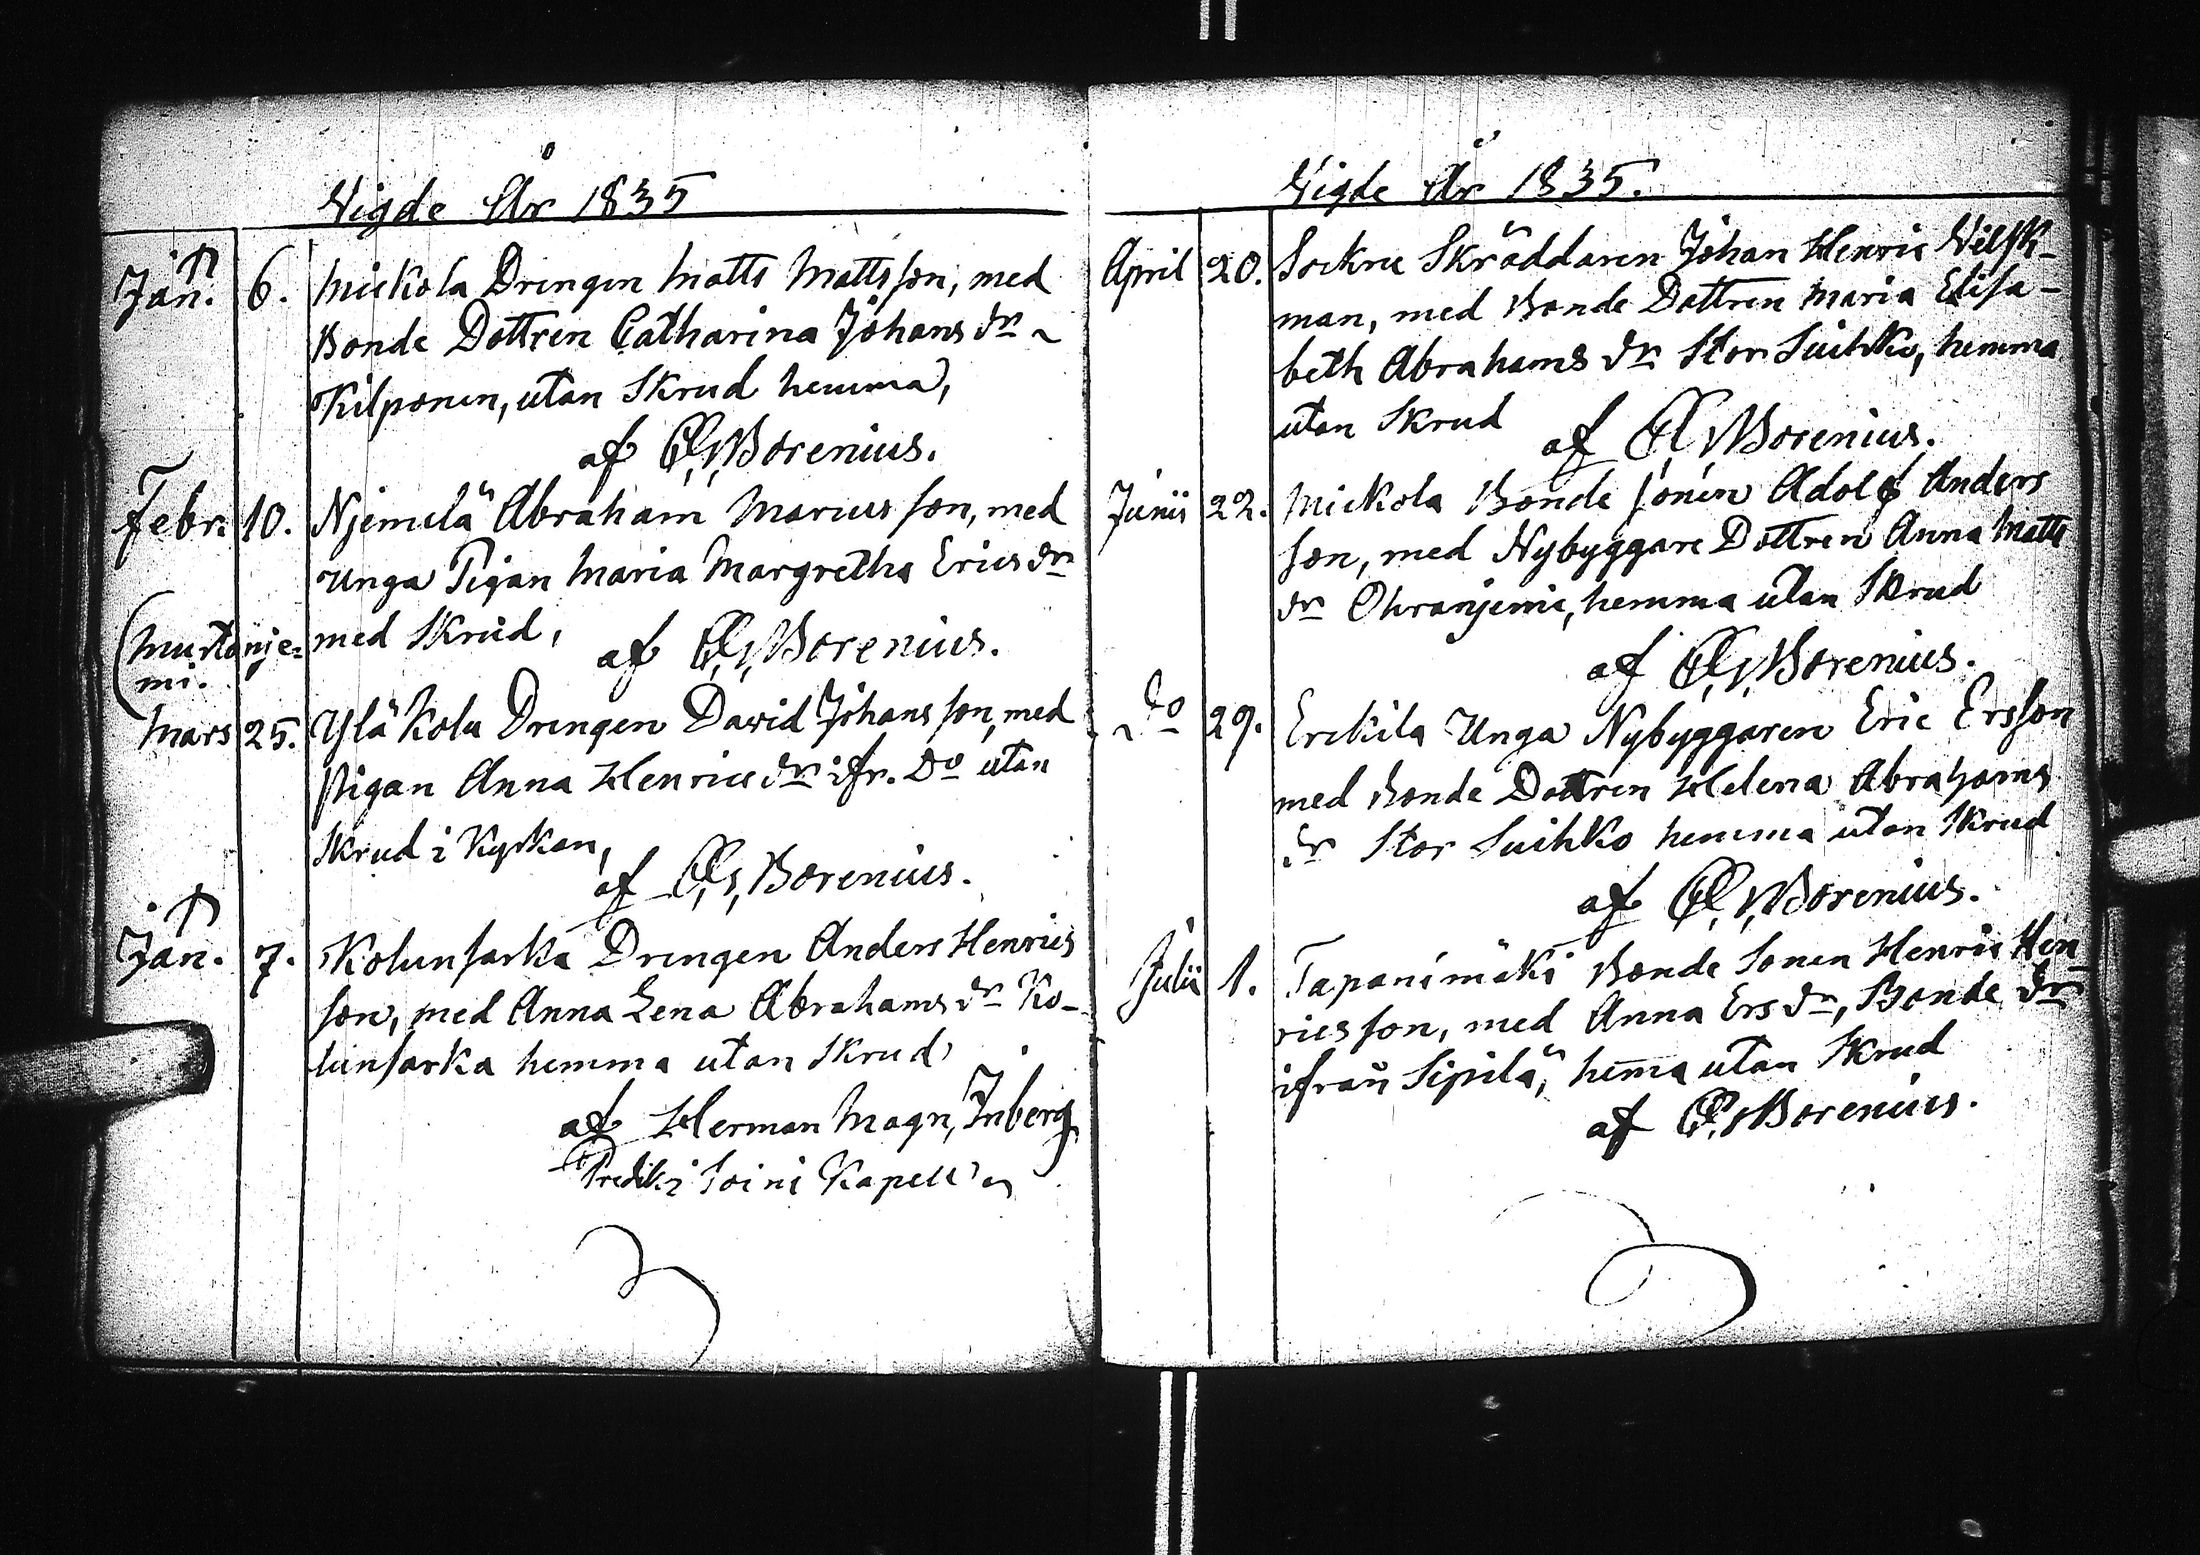 Vigde År 1835
Jan. 6. Mickola Drengen Matts Mattsson, med
Bonde Dottren Catharina Johans dr
Kilponen, utan Skrud hemma,
af Borenius.
Febr. 10. Njemelä Abraham Marcusson, med
unga Pigan Maria Margretha Erics dr
(Murtonje-
mi.
med Skrud, af Borenius.
Mars 25. Ylä Kolu Drengen David Johansson, med
Pigan Anna Henrics dr ifr. Do utan
Skrud i Kyrkan,
af Borenius.
Jan. 7. Kolunsarka Drengen Anders Henrics
son, med Anna Lena Abrahams dr Ko-
lunsarka hemma utan Skrud
af Herman Magn, Inberg
Predik i Soini Kapell
Vigde År 1835.
April 20. Sockne Skräddaren Johan Henric Vilsk-
man, med Bonde Dottren Maria Elisa-
beth Abrahams dr Stor Suihko, hemma
utan Skrud
af Borenius.
Junii 22. Mickola Bonde sonen Adolf Anders
son, med Nybyggare Dottren Anna Matts
dr Ohranjemi, hemma utan Skrud
af Borenius.
Do 29. Erckila Unga Nybyggaren Eric Ersson
med Bonde Dottren Helena Abrahams
dr Stor Suihko hemma utan Skrud
af Borenius.
Julii 1. Tapanimäki Bonde Sonen Henric Hen-
ricsson, med Anna Ers dr, Bonde dr
ifrån Sipilä, hema utan Skrud
af Borenius.